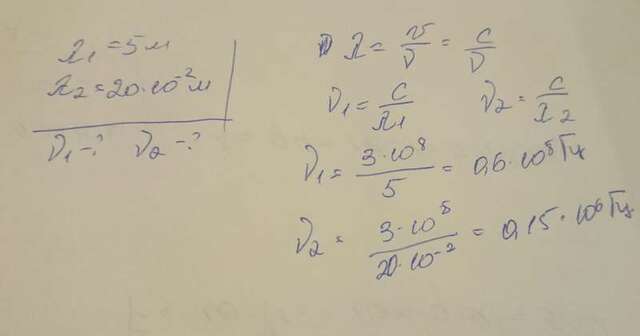 λ₁ = 5 м
λ₂ = 20·10⁻² м
ν₁ -? ν₂ -?
λ = v/ν = c/ν
ν₁ = c/λ₁ ν₂ = c/λ₂
ν₁ = 3·10⁸/5 = 0,6·10⁸ Гц
ν₂ = 3·10⁸/20·10⁻² = 0,15·10⁶ Гц